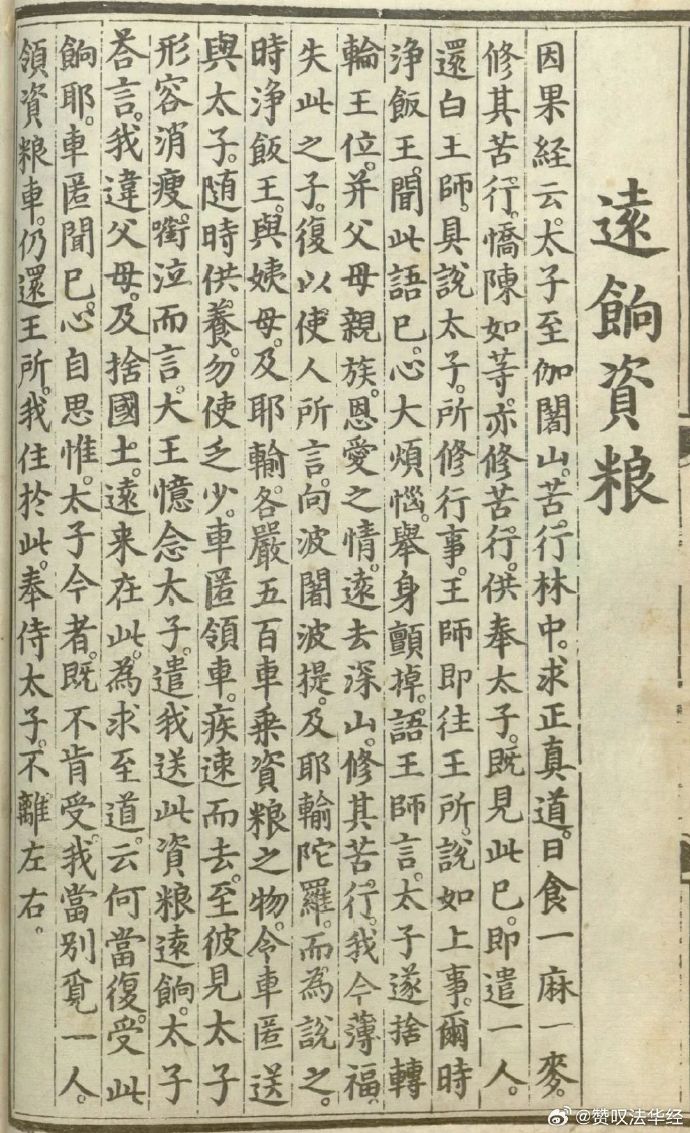 遠餉資粮
因果経云。太子至伽闍山。苦行林中。求正真道。日食一麻一麥。
修其苦行。憍陳如等。亦修苦行。供奉太子。既見此已。即遣一人。
還白王師。具說太子。所修行事。王師即往王所。說如上事。爾時
浄飯王。聞此語已。心大煩惱。舉身顫掉。語王師言。太子遂捨轉
輪王位。并父母親族。恩愛之情。遠去深山。修其苦行。我今薄福。
失此之子。復以使人所言。向波闍波提。及耶輸陀羅。而為說之。
時浄飯王。與姨母。及耶輸。各嚴五百車乗。資粮之物。令車匿送
與太子。隨時供養。勿使乏少。車匿領車。疾速而去。至彼見太子
形容消瘦。啣泣而言。大王憶念太子。遣我送此資粮遠餉。太子
荅言。我違父母。及捨國土。遠来在此。為求至道。云何當復。受此
餉耶。車匿聞已。心自思惟。太子今者。既不肯受。我當別覓一人。
領資粮車。仍還王所。我住於此。奉侍太子。不離左右。
@赞叹法华经